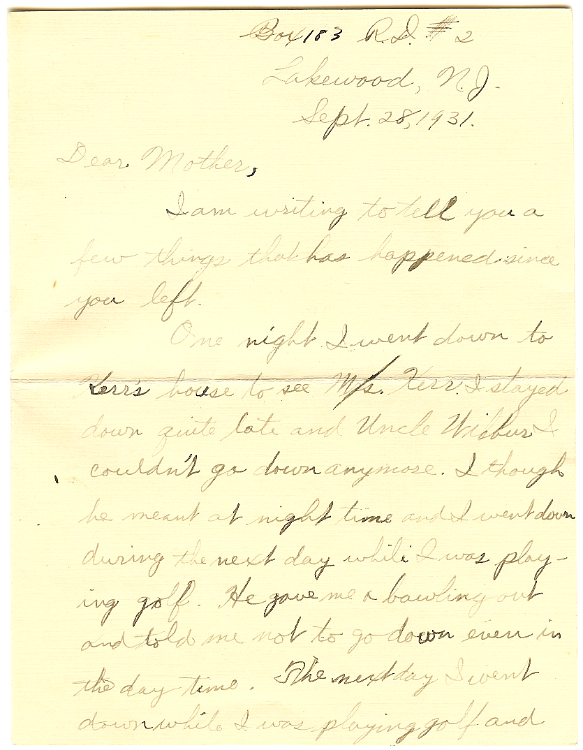 Box 183 R.D. # 2
Lakewood, N.J.
Sept. 28, 1931.
Dear Mother,
I am writing to tell you a
few things that has happened since
you left.
One night I went down to
Kerr's house to see Mrs. Kerr. I stayed
down quite late and Uncle Wilbur I
couldn't go down anymore. I though
he meant at night time and I went down
during the next day while I was play-
ing golf. He gave me a bawling out
and told me not to go down even in
the day time. The next day I went
down while I was playing golf and